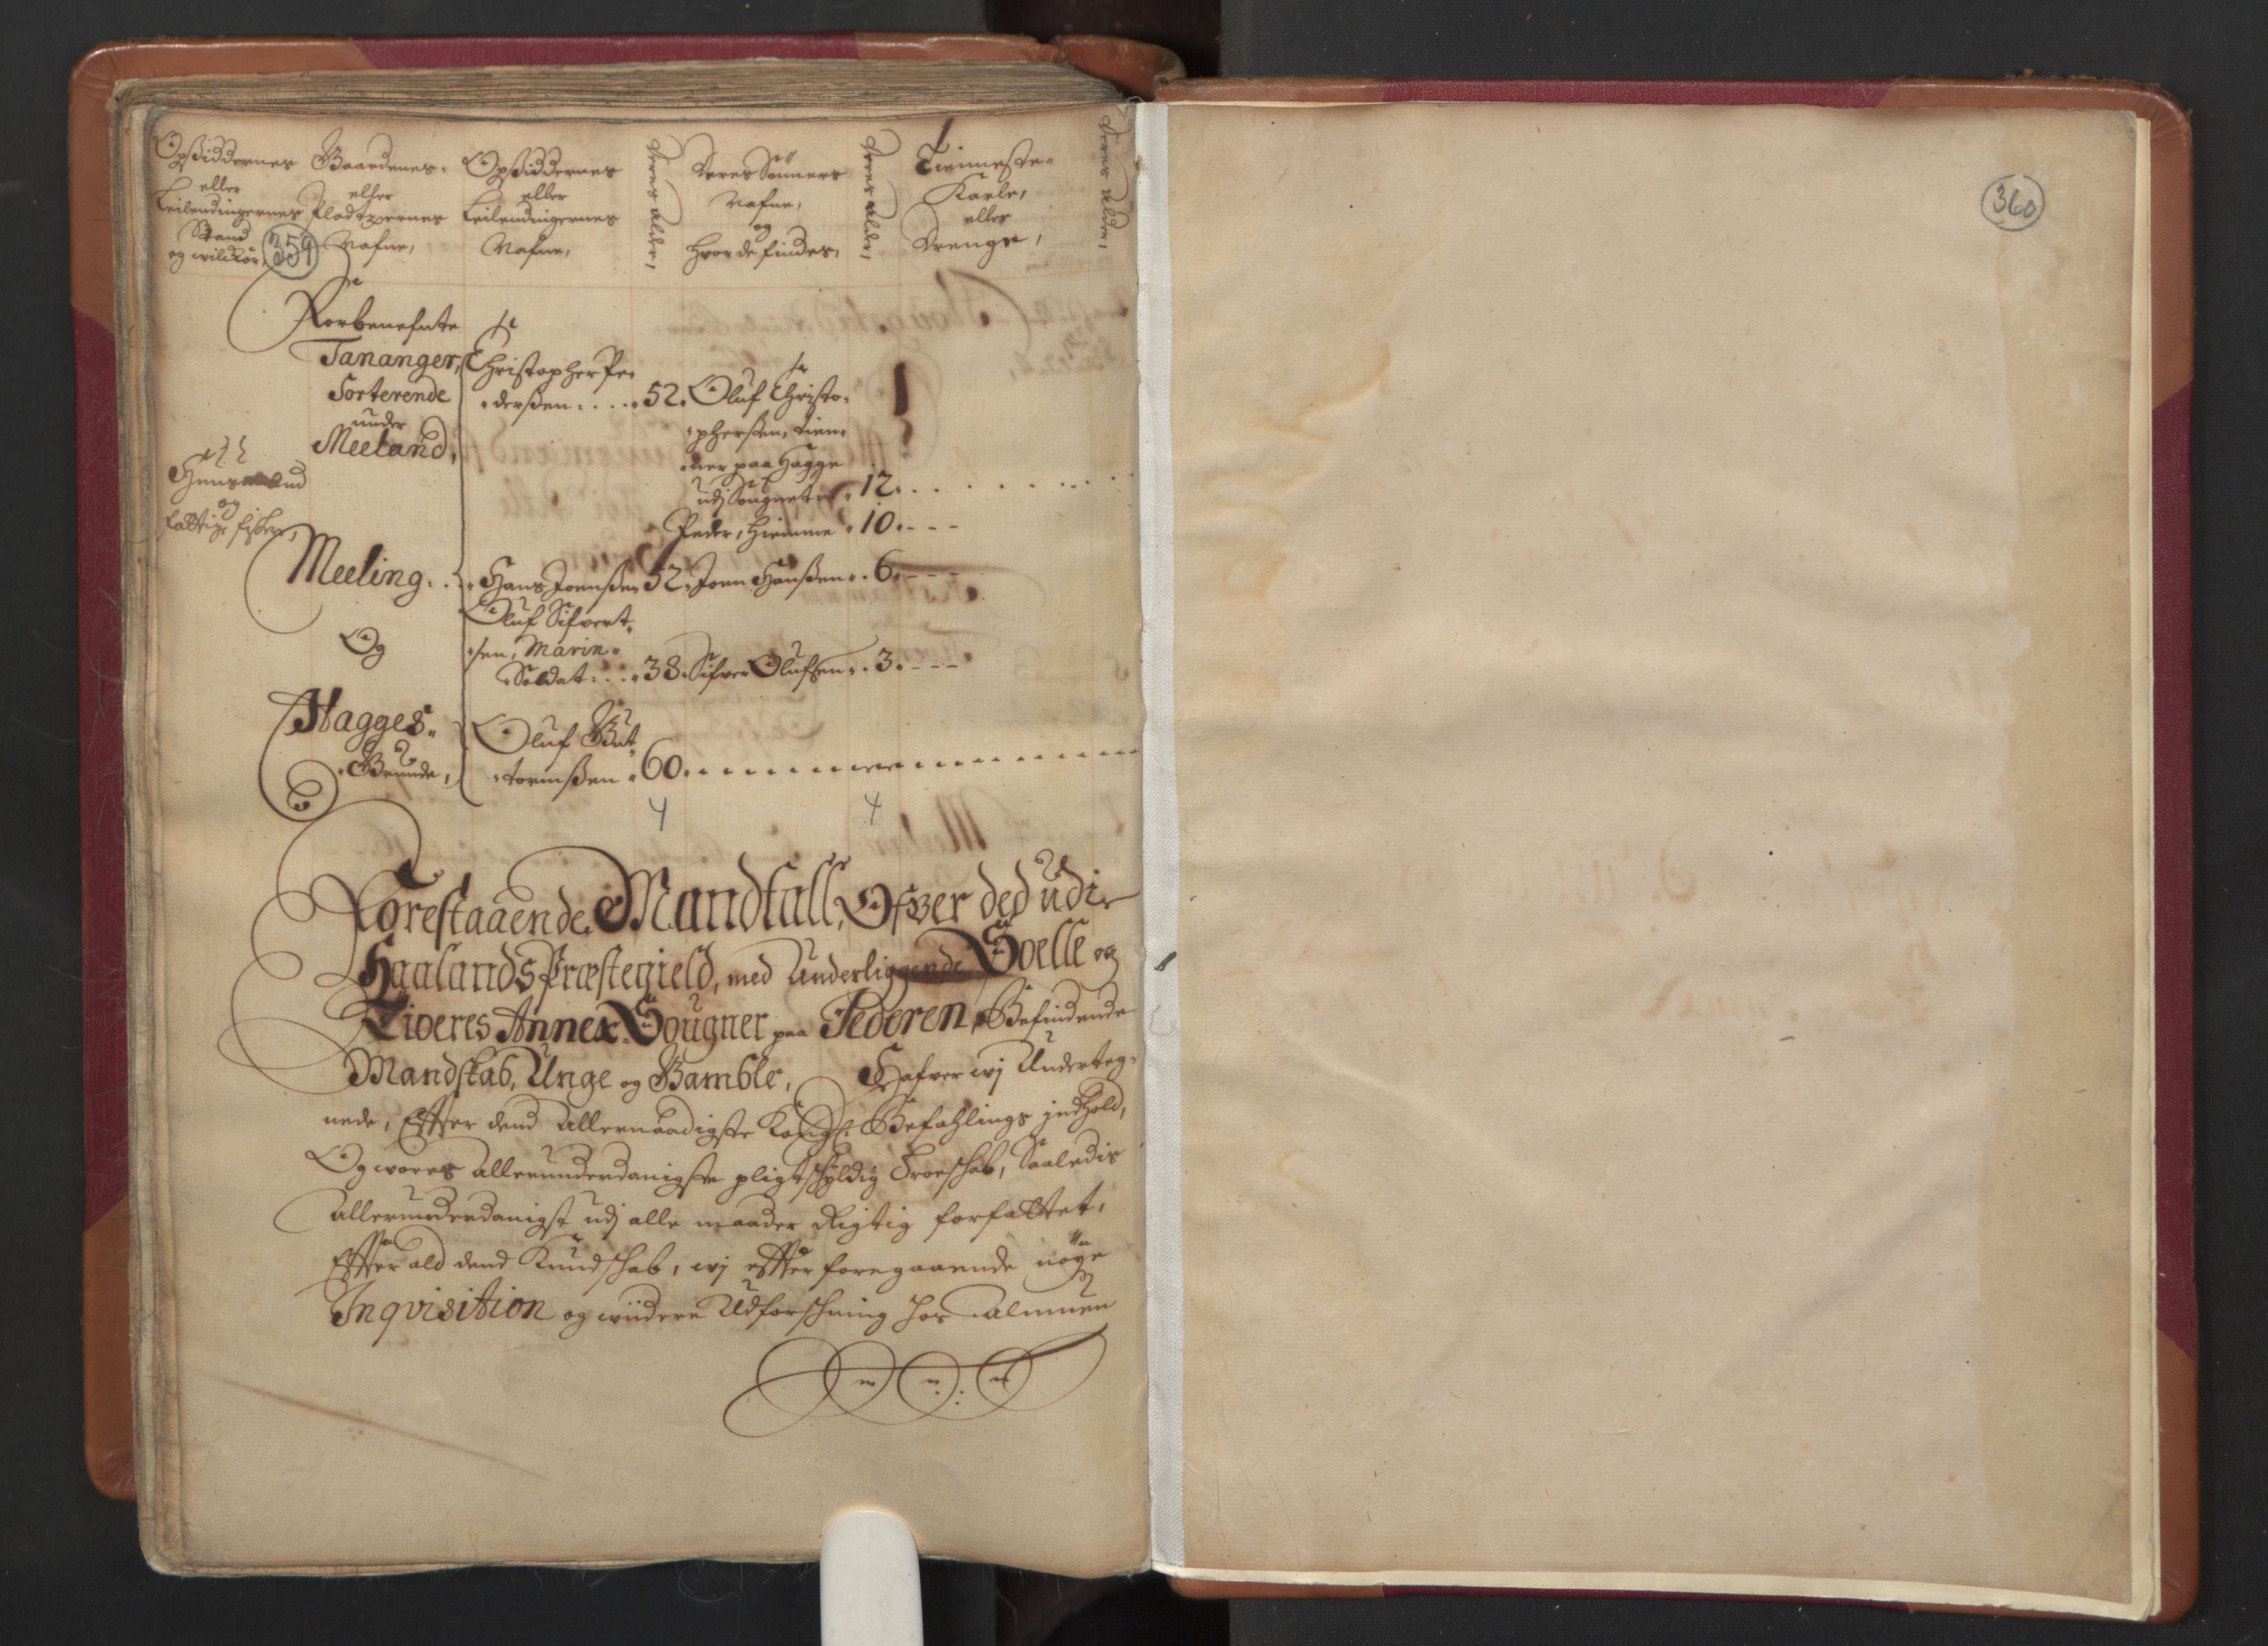 Opsiddernes
eller
Leilendingernes
Stand
og vilkor,
359
Gaardenes
eller
Pladtzernes
Nafne,
Opsiddernes
eller
Leilendingernes
Nafne,
Deres alder,
Deres Sönners
Nafne,
og
hvor de findes,
Deres alder,
Tienneste
Karle,
eller
Drenge,
Deres alder,
360
Forbenefnte
Tananger,
Sorterende
under
Meeland,
Christopher Pe-
dersen . . . . 52.
Oluf Christo-
phersen, tien-
ner paa Hagge
udj Sougnet . 12.
Peder, hiemme . 10.
Huusmænd
og
fattige fisker,
Meeling . .
Hans Joensen 52. Joen Hansen . 6.
Oluf Sifvert-
sen, Marin-
Soldat . . . 38. Sifver Olufsen . . 3.
Og
Hagges-
Grunde,
Oluf Gut-
tormsen . 60.
4 4
Forestaaende Mandtall, Ofver ded udi
Haalands Præstegield, med Underliggende Soelle og
Tioeres Annex Sougner paa Jederen, Befindende
Mandskab, Unge og Gamble, Hafver wj Underteg-
nede, Effter dend Allernaadigste Kongl: Befahlings indhold,
Og vores allerunderdanigste pligtschyldig Troeschab, Saaledis
allerunderdanigst udj alle maader Rigtig forfattet,
Effter ald dend Kundschab, wj effter foregaaende nøye
Inqvisition og viidere Udforschning hos almuen